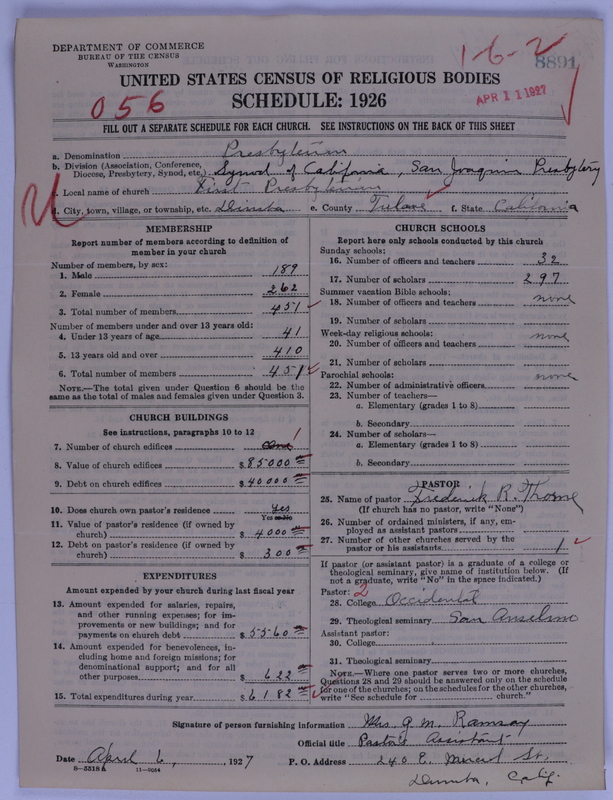 DEPARTMENT OF COMMERCE
BUREAU OF THE CENSUS
WASHINGTON
1-6-2
8891
UNITED STATES CENSUS OF RELIGIOUS BODIES
056
SCHEDULE: 1926
APR 11 1927
FILL OUT A SEPARATE SCHEDULE FOR EACH CHURCH. SEE INSTRUCTIONS ON THE BACK OF THIS SHEET
a. Denomination Presbyterian
b. Division (Association, Conference, Diocese, Presbytery, Synod, etc.) Synod of California, San Joaquin Presbytery
c. Local name of church First Presbyterian
d. City, town, village, or township, etc. Dinuba e. County Tulare f. State California
MEMBERSHIP
Report number of members according to definition of member in your church
Number of members, by sex:
1. Male 189
2. Female 262
3. Total number of members 451
Number of members under and over 13 years old:
4. Under 13 years of age 41
5. 13 years old and over 410
6. Total number of members 451
NOTE.—The total given under Question 6 should be the same as the total of males and females given under Question 3.
CHURCH BUILDINGS
See instructions, paragraphs 10 to 12
7. Number of church edifices One 1
8. Value of church edifices $ 85000
9. Debt on church edifices $ 40000
10. Does church own pastor's residence Yes
Yes or No
11. Value of pastor's residence (if owned by church) $ 4000
12. Debt on pastor's residence (if owned by church) $ 300
EXPENDITURES
Amount expended by your church during last fiscal year
13. Amount expended for salaries, repairs, and other running expenses; for improvements or new buildings; and for payments on church debt $ 5560
14. Amount expended for benevolences, including home and foreign missions; for denominational support; and for all other purposes $ 622
15. Total expenditures during year $ 6182
CHURCH SCHOOLS
Report here only schools conducted by this church
Sunday schools:
16. Number of officers and teachers 32
17. Number of scholars 297
Summer vacation Bible schools:
18. Number of officers and teachers none
19. Number of scholars
Week-day religious schools:
20. Number of officers and teachers none
21. Number of scholars
Parochial schools:
22. Number of administrative officers none
23. Number of teachers—
a. Elementary (grades 1 to 8)
b. Secondary
24. Number of scholars—
a. Elementary (grades 1 to 8)
b. Secondary
PASTOR
25. Name of pastor Frederick R. Thorne
(If church has no pastor, write "None")
26. Number of ordained ministers, if any, employed as assistant pastors
27. Number of other churches served by the pastor or his assistants 1
If pastor (or assistant pastor) is a graduate of a college or theological seminary, give name of institution below. (If not a graduate, write "No" in the space indicated.)
Pastor: 2
28. College Occidental
29. Theological seminary San Anselmo
Assistant pastor:
30. College
31. Theological seminary
NOTE.—Where one pastor serves two or more churches, Questions 28 and 29 should be answered only on the schedule for one of the churches; on the schedules for the other churches, write "See schedule for church."
Signature of person furnishing information Mrs. G. M. Ramsay
Official title Pastor's Assistant
Date April 6, 1927 P. O. Address 240 E. Merced St.
8—5518 a 11—9064
Dinuba, Calif.